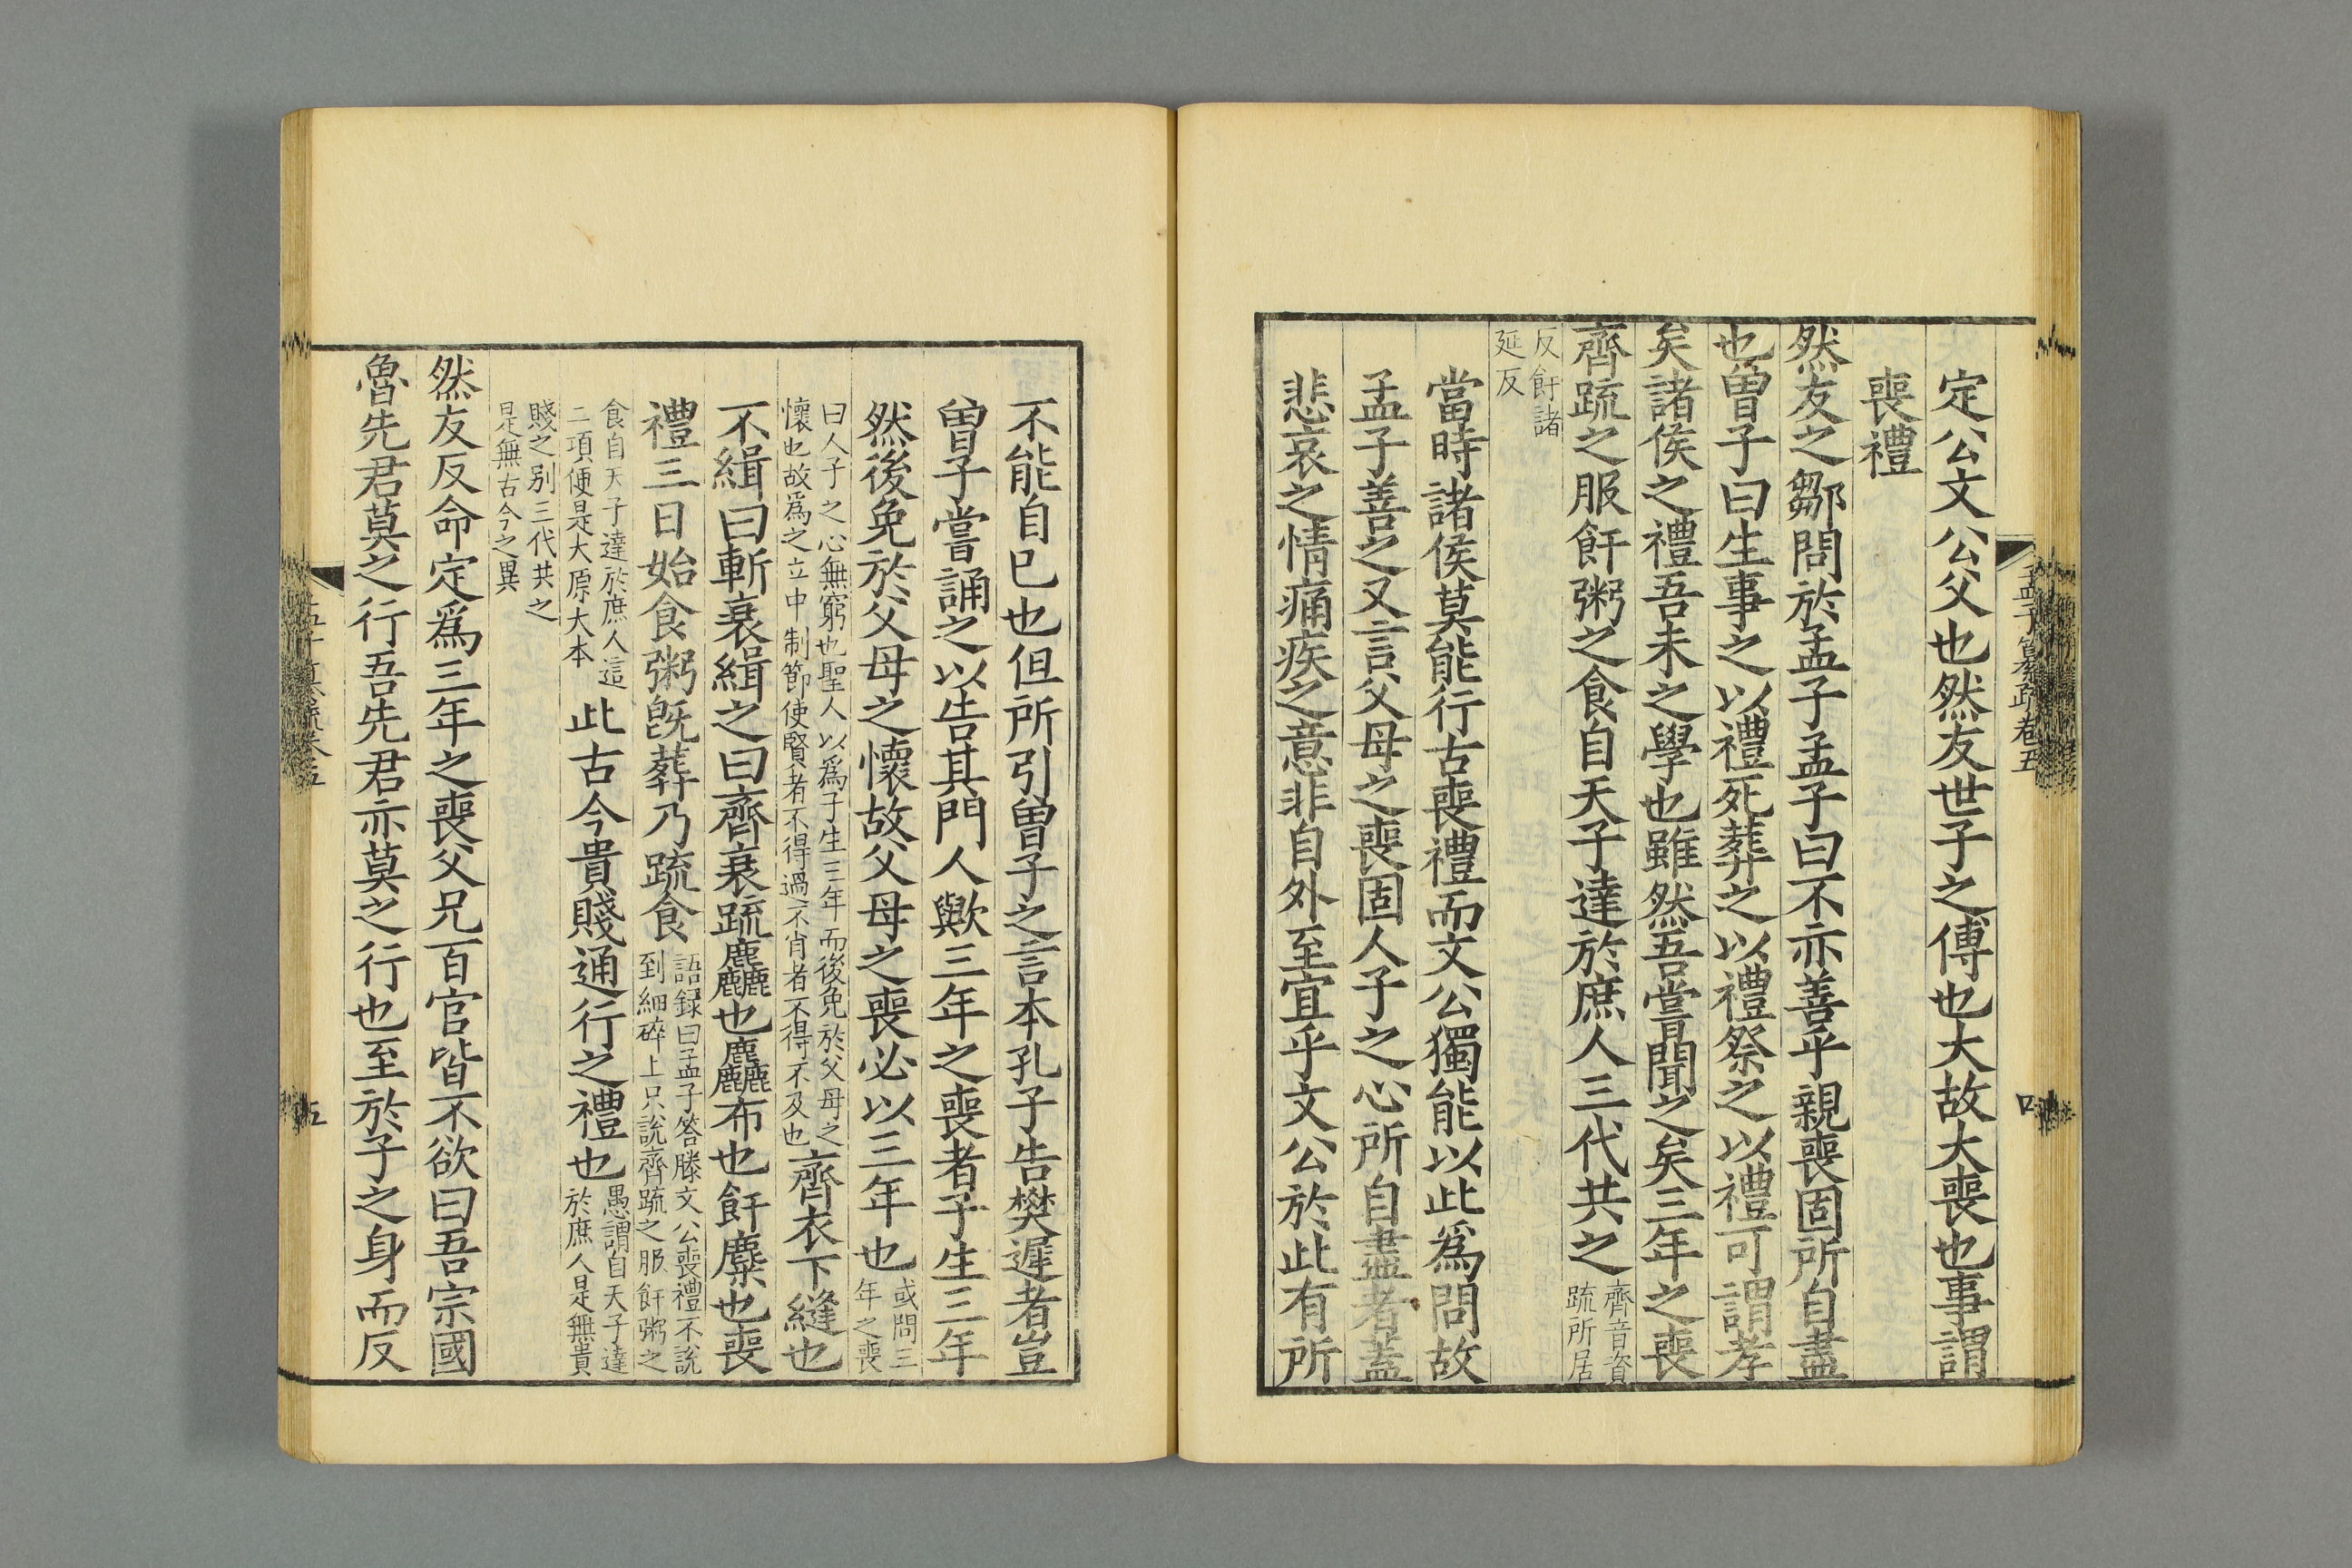 定公文公父也然友世子之傅也大故大喪也事謂
喪禮
然友之鄒問於孟子孟子曰不亦善乎親喪固所自盡
也曽子曰生事之以禮死葬之以禮祭之以禮可謂孝
矣諸侯之禮吾未之學也雖然吾嘗聞之矣三年之喪
齊疏之服飦粥之食自天子達於庶人三代共之
齊音資
疏所居
反飦諸
延反
當時諸侯莫能行古喪禮而文公獨能以此爲問故
孟子善之又言父母之喪固人子之心所自盡者蓋
悲哀之情痛疾之意非自外至宜乎文公於此有所
孟子纂疏卷五
不能自已也但所引曽子之言本孔子告樊遲者豈
曽子嘗誦之以告其門人歟三年之喪者子生三年
然後免於父母之懷故父母之喪必以三年也
或問三
年之喪
曰人子之心無窮也聖人以爲子生三年而後免於父母之
懷也故爲之立中制節使賢者不得過不肖者不得不及也
齊衣下縫也
不緝曰斬衰緝之曰齊衰疏麤也麤布也飦糜也喪
禮三日始食粥旣葬乃疏食
語録曰孟子答滕文公喪禮不說
到細碎上只說齊疏之服飦粥之
食自天子達於庶人這
二項便是大原大本
此古今貴賤通行之禮也
愚謂自天子達
於庶人是無貴
賤之别三代共之
是無古今之異
然友反命定爲三年之喪父兄百官皆不欲曰吾宗國
魯先君莫之行吾先君亦莫之行也至於子之身而反
五